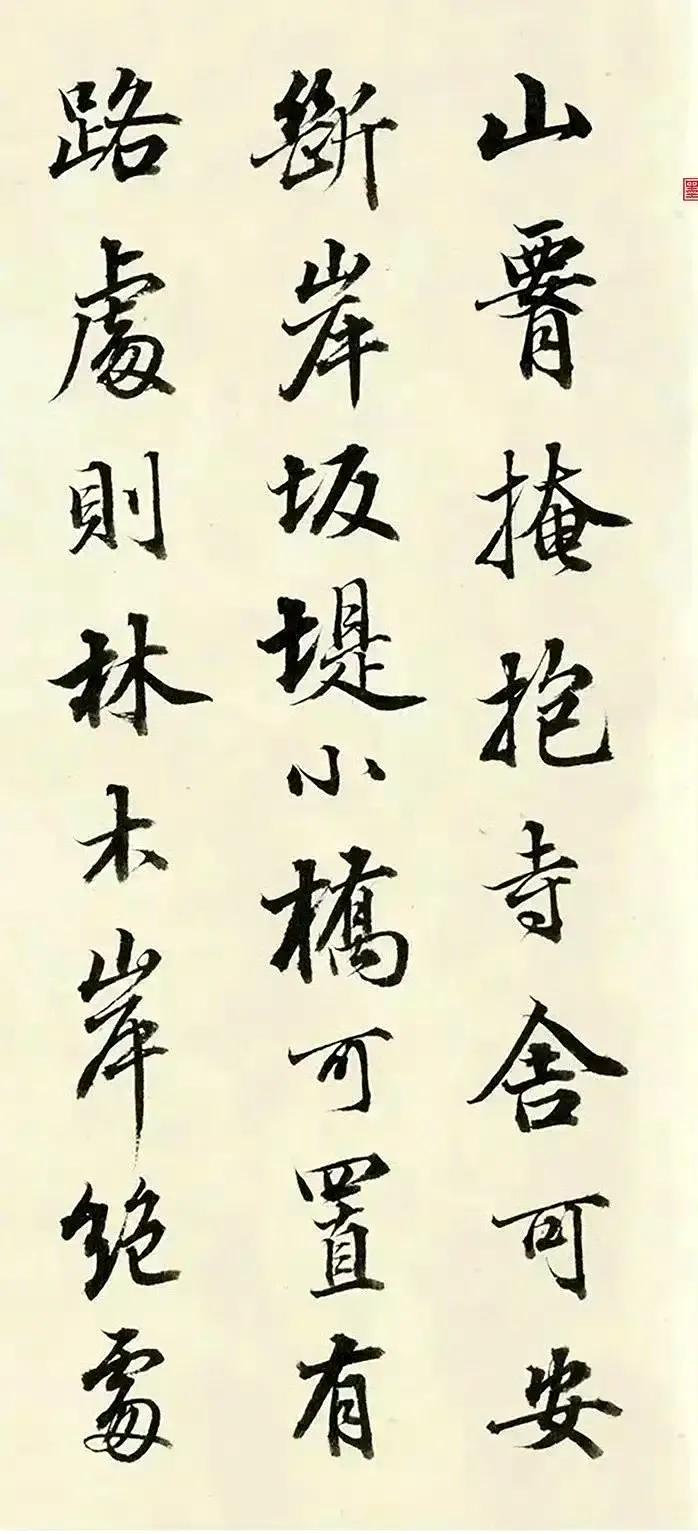 山䯒掩抱寺舍可安
斷岸坂堤小橋可置有
路處則林木岸絶處